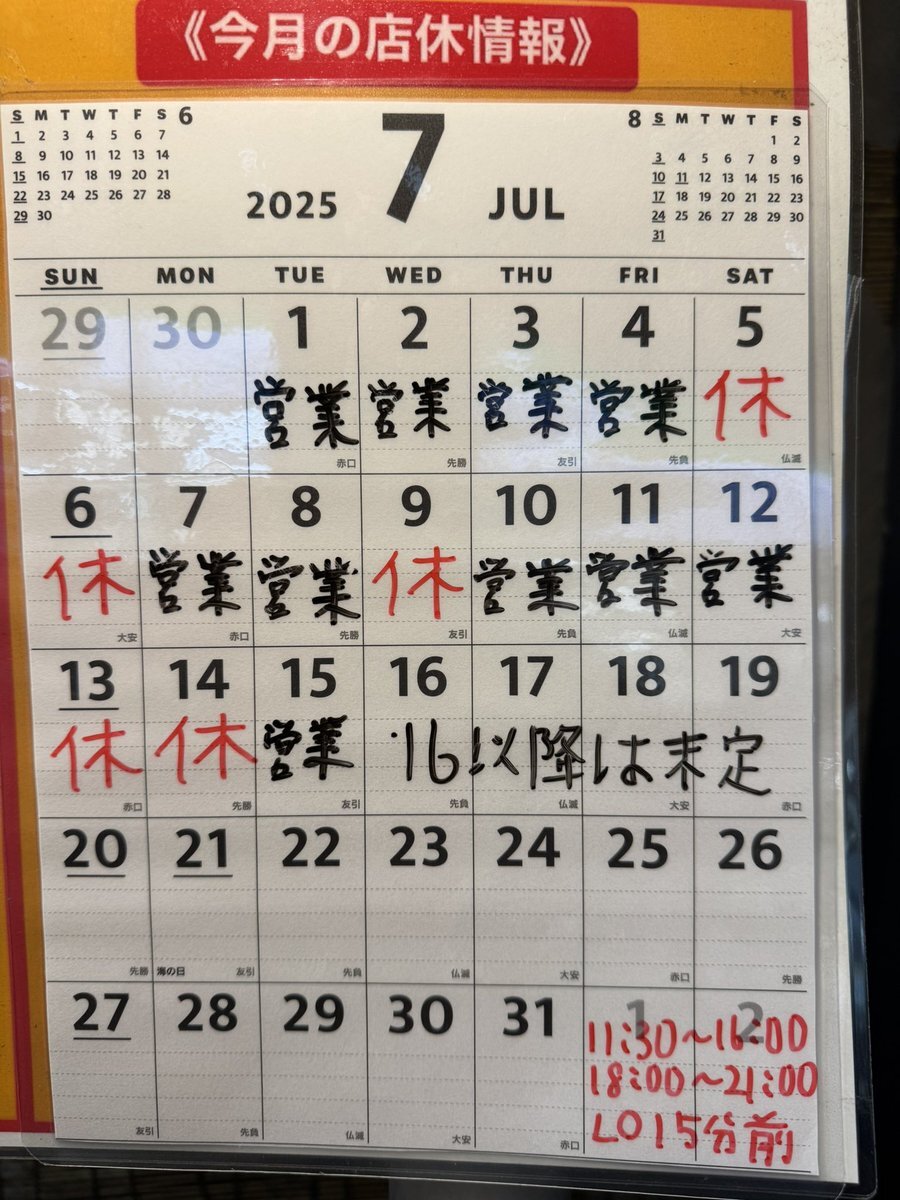 《今月の店休情報》
S M T W T F S 6
1 2 3 4 5 6 7
8 9 10 11 12 13 14
15 16 17 18 19 20 21
22 23 24 25 26 27 28
29 30
2025 7 JUL
8 S M T W T F S
1 2
3 4 5 6 7 8 9
10 11 12 13 14 15 16
17 18 19 20 21 22 23
24 25 26 27 28 29 30
31
SUN MON TUE WED THU FRI SAT
29 30 1 2 3 4 5
営業 営業 営業 営業 休
赤口 先勝 友引 先負 仏滅
6 7 8 9 10 11 12
休 営業 営業 休 営業 営業 営業
大安 赤口 先勝 友引 先負 仏滅 大安
13 14 15 16 17 18 19
休 休 営業 16以降は未定
赤口 先勝 友引 先負 仏滅 大安 赤口
20 21 22 23 24 25 26
先勝 海の日 友引 先負 仏滅 大安 赤口 先勝
27 28 29 30 31 1 2
11:30~16:00
18:00~21:00
LO 15分前
友引 先負 仏滅 大安 赤口